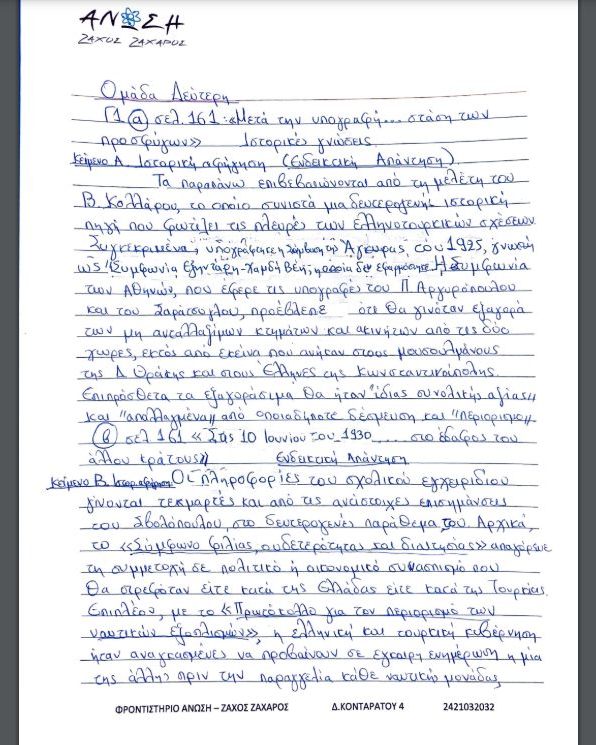 ΑΝΩΣΗ
ΖΑΧΟΣ ΖΑΧΑΡΟΣ
Ομάδα Δεύτερη
Γ1 (α) σελ 161: «Μετά την υπογραφή... στάση των
προσφύγων» Ιστορικές γνώσεις
Κείμενο Α. Ιστορική αφήγηση (Ενδεικτική Απάντηση)
Τα παραπάνω επιβεβαιώνονται από τη μελέτη του
Β. Κολλάρου, το οποίο συνιστά μια δευτερογενή ιστορική
πηγή που φωτίζει τις πλευρές των ελληνοτουρκικών σχέσεων.
Συγκεκριμένα, υπογράφηκε η Σύμβαση της Άγκυρας του 1925, γνωστή
ως "Συμφωνία Εξηντάρη-Χαμδή Βέη, η οποία δεν εφαρμόστηκε. Η Συμφωνία
των Αθηνών, που έφερε τις υπογραφές του Π. Αργυρόπουλου
και του Σαράτσογλου, προέβλεπε ότι θα γινόταν εξαγορά
των μη ανταλλάξιμων κτημάτων και ακινήτων από τις δύο
χώρες, εκτός από εκείνα που ανήκαν στους μουσουλμάνους
της Δ. Θράκης και στους Έλληνες της Κωνσταντινούπολης.
Επιπρόσθετα τα εξαγοράσιμα θα ήταν "ίδιας συνολικής αξίας"
και "απαλλαγμένα" από οποιαδήποτε δέσμευση και "περιορισμό".
(β) σελ 161 «Στις 10 Ιουνίου του 1930 ..... στο έδαφος του
άλλου κράτους» Ενδεικτική Απάντηση
Κείμενο Β. Οι πληροφορίες του σχολικού εγχειριδίου
γίνονται τεκμαρτές και από τις αντίστοιχες επισημάνσεις
του Σβολόπουλου, στο δευτερογενές παράθεμά του. Αρχικά,
το «Σύμφωνο φιλίας, ουδετερότητας και διαιτησίας» απαγόρευε
τη συμμετοχή σε πολιτικό ή οικονομικό συνασπισμό που
θα στρεφόταν είτε κατά της Ελλάδας είτε κατά της Τουρκίας.
Επιπλέον, με το «Πρωτόκολλο για τον περιορισμό των
ναυτικών εξοπλισμών», η ελληνική και τουρκική κυβέρνηση
ήταν αναγκασμένες να προβαίνουν σε έγκαιρη ενημέρωση η μία
της άλλης πριν την παραγγελία κάθε ναυτικής μονάδας
ΦΡΟΝΤΙΣΤΗΡΙΟ ΑΝΩΣΗ – ΖΑΧΟΣ ΖΑΧΑΡΟΣ Δ.ΚΟΝΤΑΡΑΤΟΥ 4 2421032032